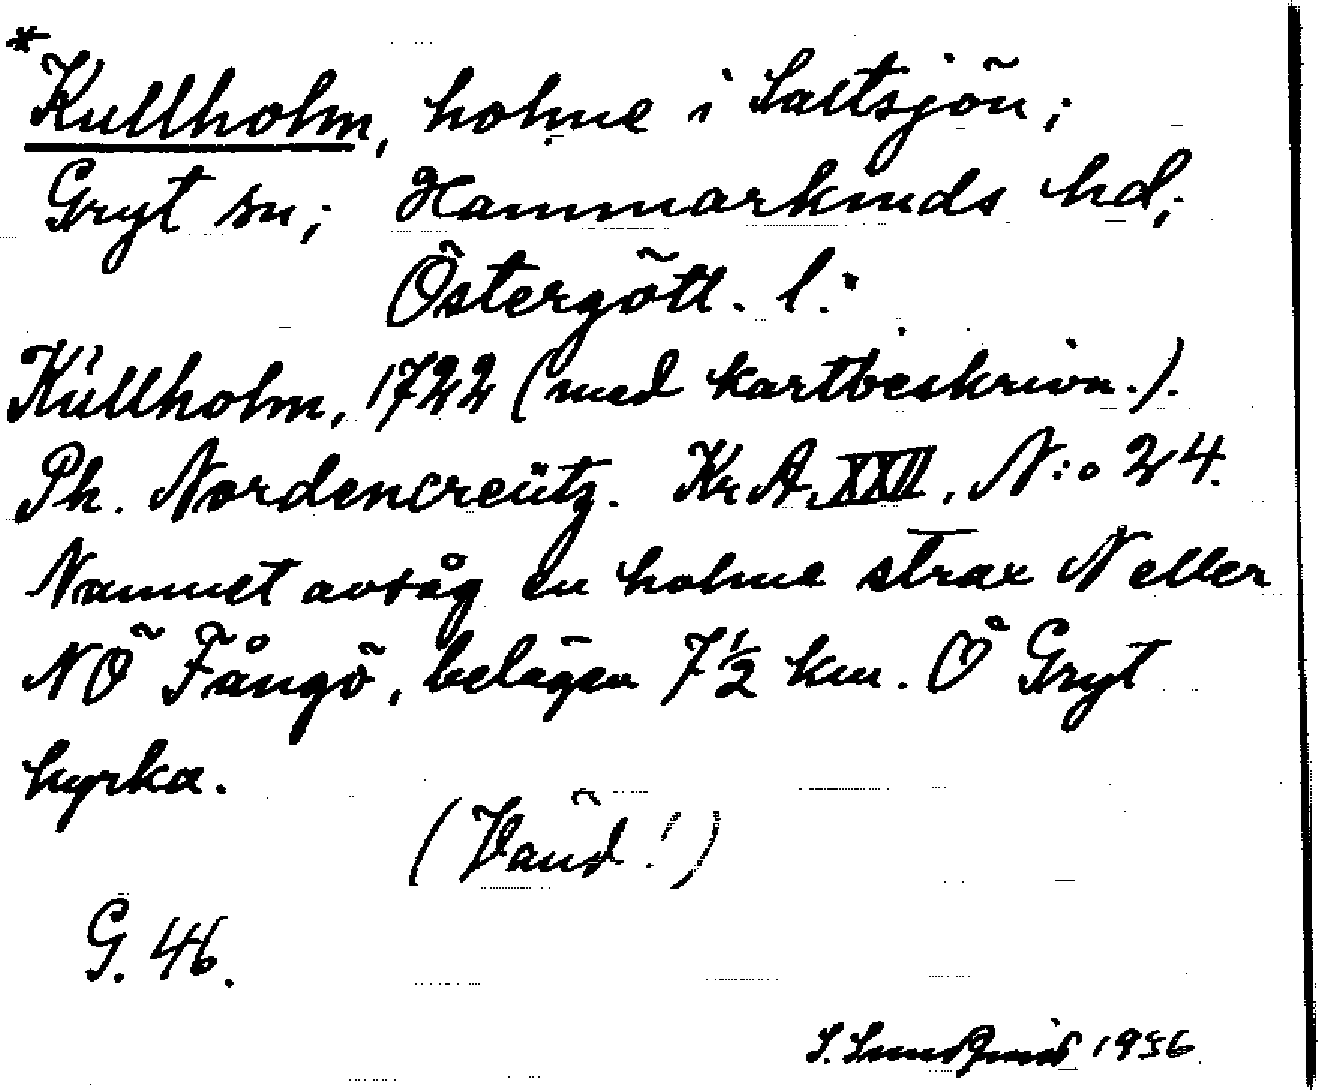 *Kullholm, holme i Saltsjön;
Gryt sn; Hammarkinds hd;
Östergötl. l:
Kúllholm, 1722 (med kartbeskrivn.).
Ph. Nordencreütz. Kr. A. XXII, N:o 24.
Namnet avsåg en holme strax N eller
NÖ Fångö, belägen 7½ km. Ö Gryt
kyrka.
(Vänd!)
G. 46.
S. Lundqvist 1936